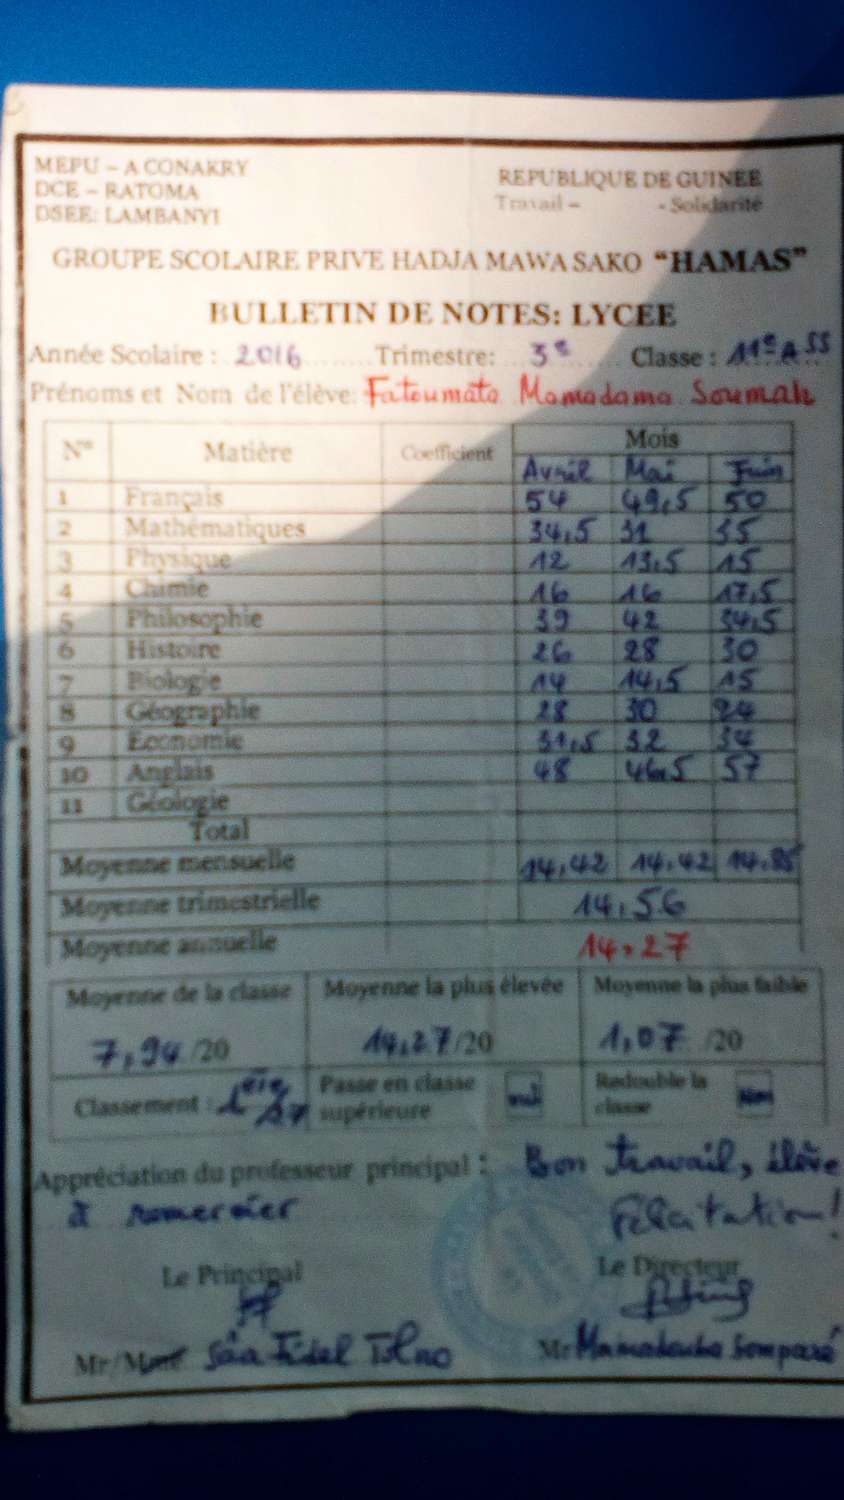 MEPU – A CONAKRY
REPUBLIQUE DE GUINEE
DCE – RATOMA
Travail – - Solidarité
DSEE: LAMBANYI
GROUPE SCOLAIRE PRIVE HADJA MAWA SAKO “HAMAS”
BULLETIN DE NOTES: LYCEE
Année Scolaire : 2016 Trimestre: 3e Classe : 11e A SS
Prénoms et Nom de l'élève: Fatoumata Momadama Soumah
N° Matière Coefficient Mois
Avril Mai Juin
1 Français 54 49,5 50
2 Mathématiques 34,5 31 35
3 Physique 12 13,5 15
4 Chimie 16 16 17,5
5 Philosophie 39 42 34,5
6 Histoire 26 28 30
7 Biologie 14 14,5 15
8 Géographie 28 30 24
9 Economie 31,5 32 34
10 Anglais 48 46,5 57
11 Géologie
Total
Moyenne mensuelle 14,42 14,42 14,85
Moyenne trimestrielle 14,56
Moyenne annuelle 14,27
Moyenne de la classe Moyenne la plus élevée Moyenne la plus faible
7,94 /20 14,27/20 1,07 /20
Classement : 1ère Passe en classe supérieure oui Redouble la classe Non
Appréciation du professeur principal : Bon travail, élève
à remercier Félicitation!
Le Principal Le Directeur
Mr/Mme Sâa Fidel Tolno Mr Mamadouba Somparé